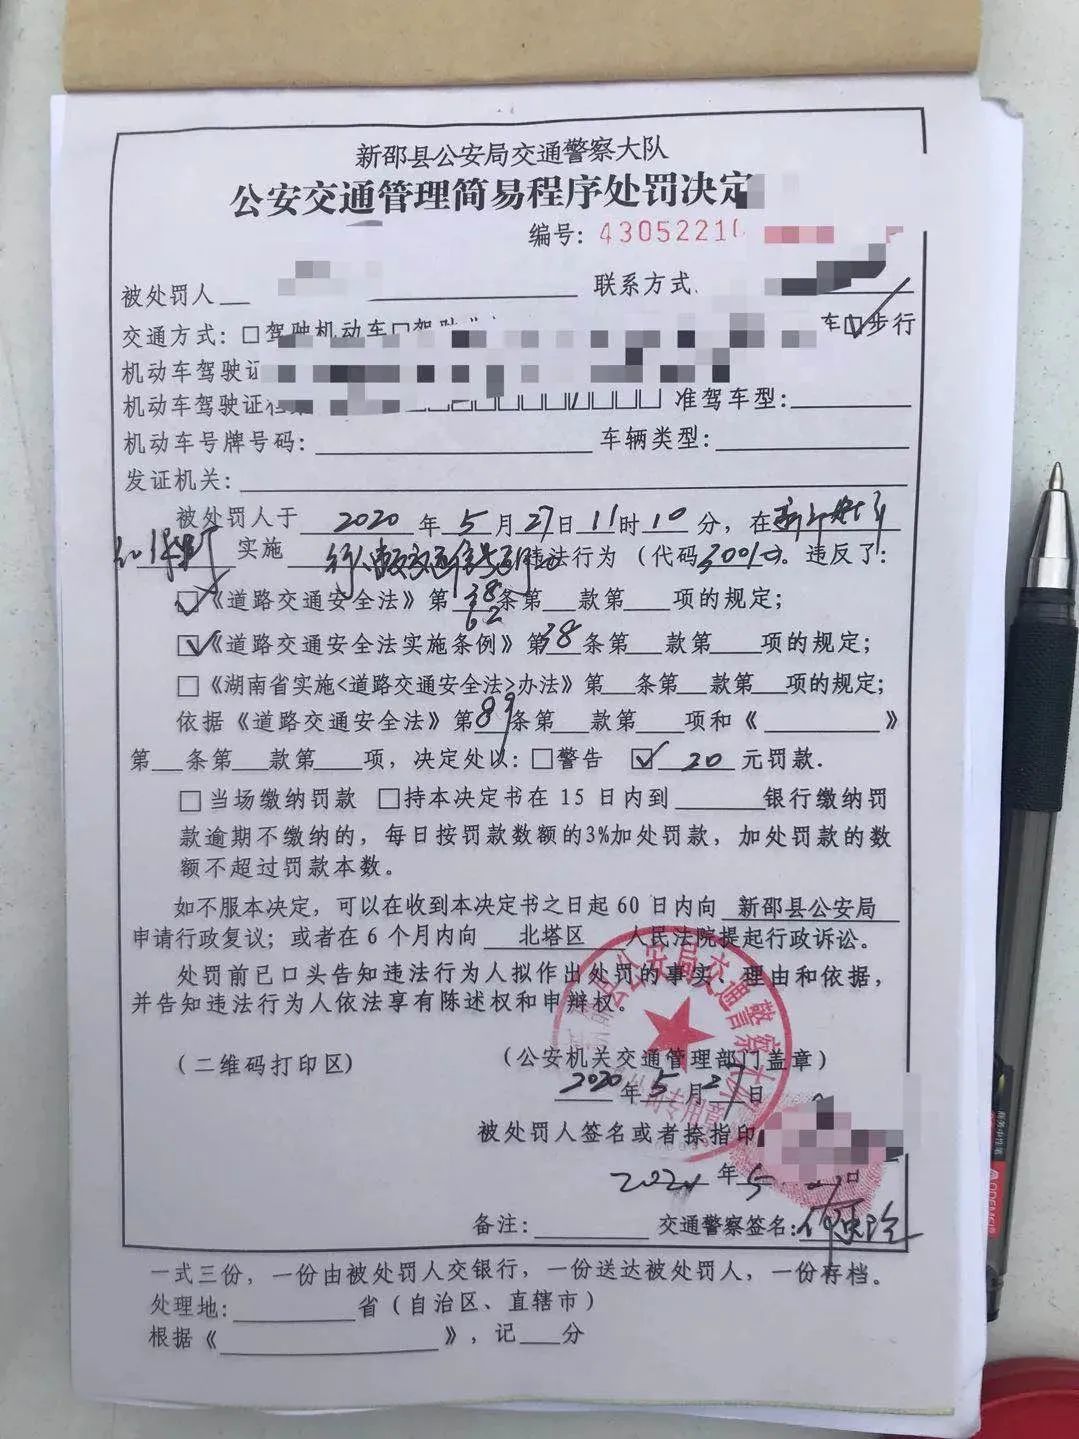 新邵县公安局交通警察大队
公安交通管理简易程序处罚决定
编号: 43052210
被处罚人 联系方式
交通方式: □驾驶机动车□驾驶 车☑步行
机动车驾驶证
机动车驾驶证档 准驾车型:
机动车号牌号码: 车辆类型:
发证机关:
被处罚人于 2020 年 5 月 27 日 11 时 10 分, 在
实施 违法行为 (代码 3001)。违反了:
☑《道路交通安全法》第 38 62 条第 款第 项的规定;
☑《道路交通安全法实施条例》第 38 条第 款第 项的规定;
□《湖南省实施<道路交通安全法>办法》第 条第 款第 项的规定;
依据《道路交通安全法》第 89 条第 款第 项和《 》
第 条第 款第 项, 决定处以: □警告 ☑ 20 元罚款.
□当场缴纳罚款 □持本决定书在 15 日内到 银行缴纳罚
款逾期不缴纳的, 每日按罚款数额的3%加处罚款, 加处罚款的数
额不超过罚款本数。
如不服本决定, 可以在收到本决定书之日起 60 日内向 新邵县公安局
申请行政复议; 或者在 6 个月内向 北塔区 人民法院提起行政诉讼。
处罚前已口头告知违法行为人拟作出处罚的事实、理由和依据,
并告知违法行为人依法享有陈述权和申辩权。
(二维码打印区) (公安机关交通管理部门盖章)
2020 年 5 月 27 日
被处罚人签名或者捺指印
年 5 日
备注: 交通警察签名:
一式三份, 一份由被处罚人交银行, 一份送达被处罚人, 一份存档。
处理地: 省 (自治区、直辖市)
根据《 》, 记 分